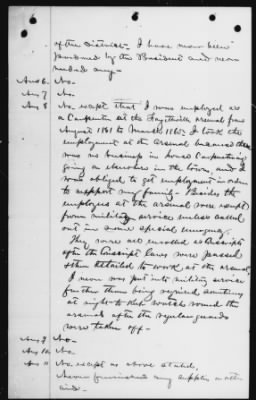 of the District - I have never been
pardoned by the President and never
needed any -
Ans 6. No.
Ans 7 No.
Ans 8 No, except that I was employed as
a Carpenter at the Fayetteville arsenal from
August 1861 to March 1865 - I took the
employment at the arsenal because there
was no business in house Carpentering
going on elsewhere in the town, and I
was obliged to get employment in order
to support my family - Besides the
employees at the arsenal were exempt
from military service unless called
out in some special emergency.
They were all enrolled as Conscripts
after the Conscript laws were passed
& then detailed to work at the arsenal,
I never was put into military service
further than being required sometimes
at night to keep watch round the
arsenal after the regular guards
were taken off -
Ans 9 No -
Ans 10 No.
Ans 11 No except as above stated,
Never furnished any supplies or other
aid -